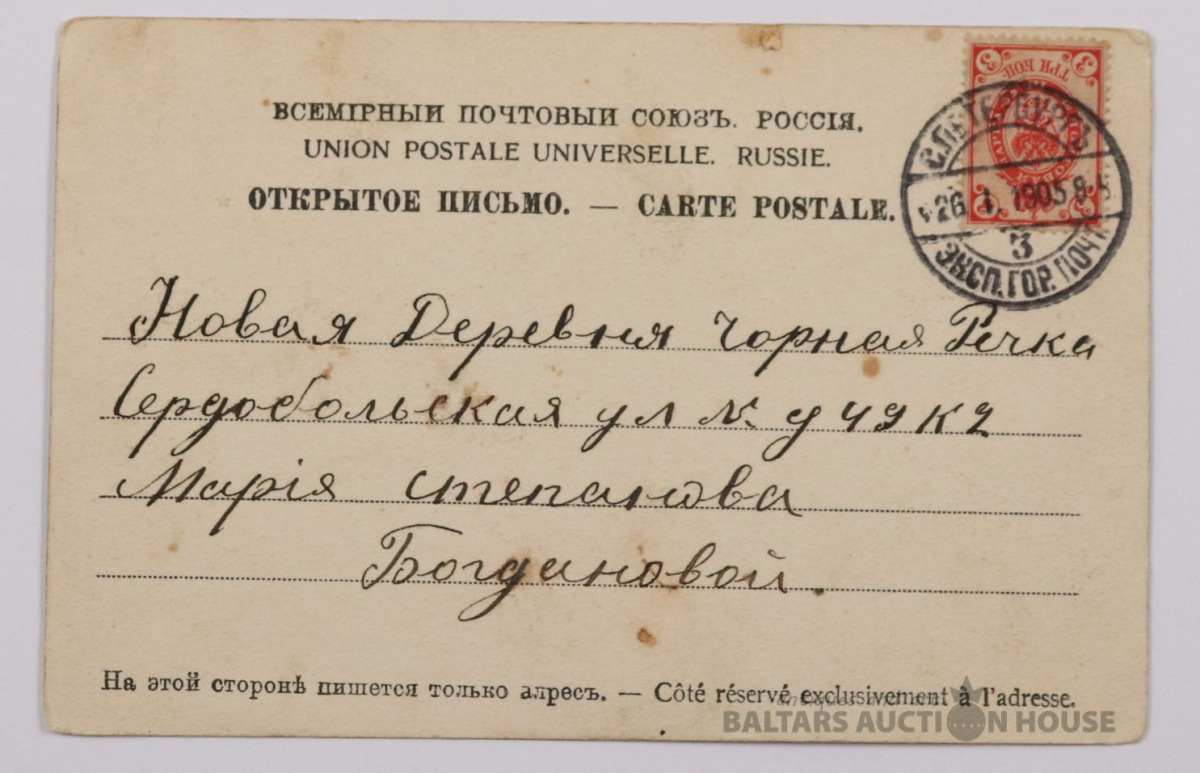 ВСЕМІРНЫЙ ПОЧТОВЫЙ СОЮЗЪ. РОССІЯ.
UNION POSTALE UNIVERSELLE. RUSSIE.
ОТКРЫТОЕ ПИСЬМО. — CARTE POSTALE.
3 ТРИ КОП. 3
С.ПЕТЕРБУРГЪ
26 1 1905
3
ЭКСП. ГОР. ПОЧТ
Новая Деревня Чорная Речка
Сердобольская ул № д 49 к 2
Марія Степанова
Богдановой.
На этой сторонѣ пишется только адресъ. — Côté réservé exclusivement à l'adresse.
BALTARS AUCTION HOUSE